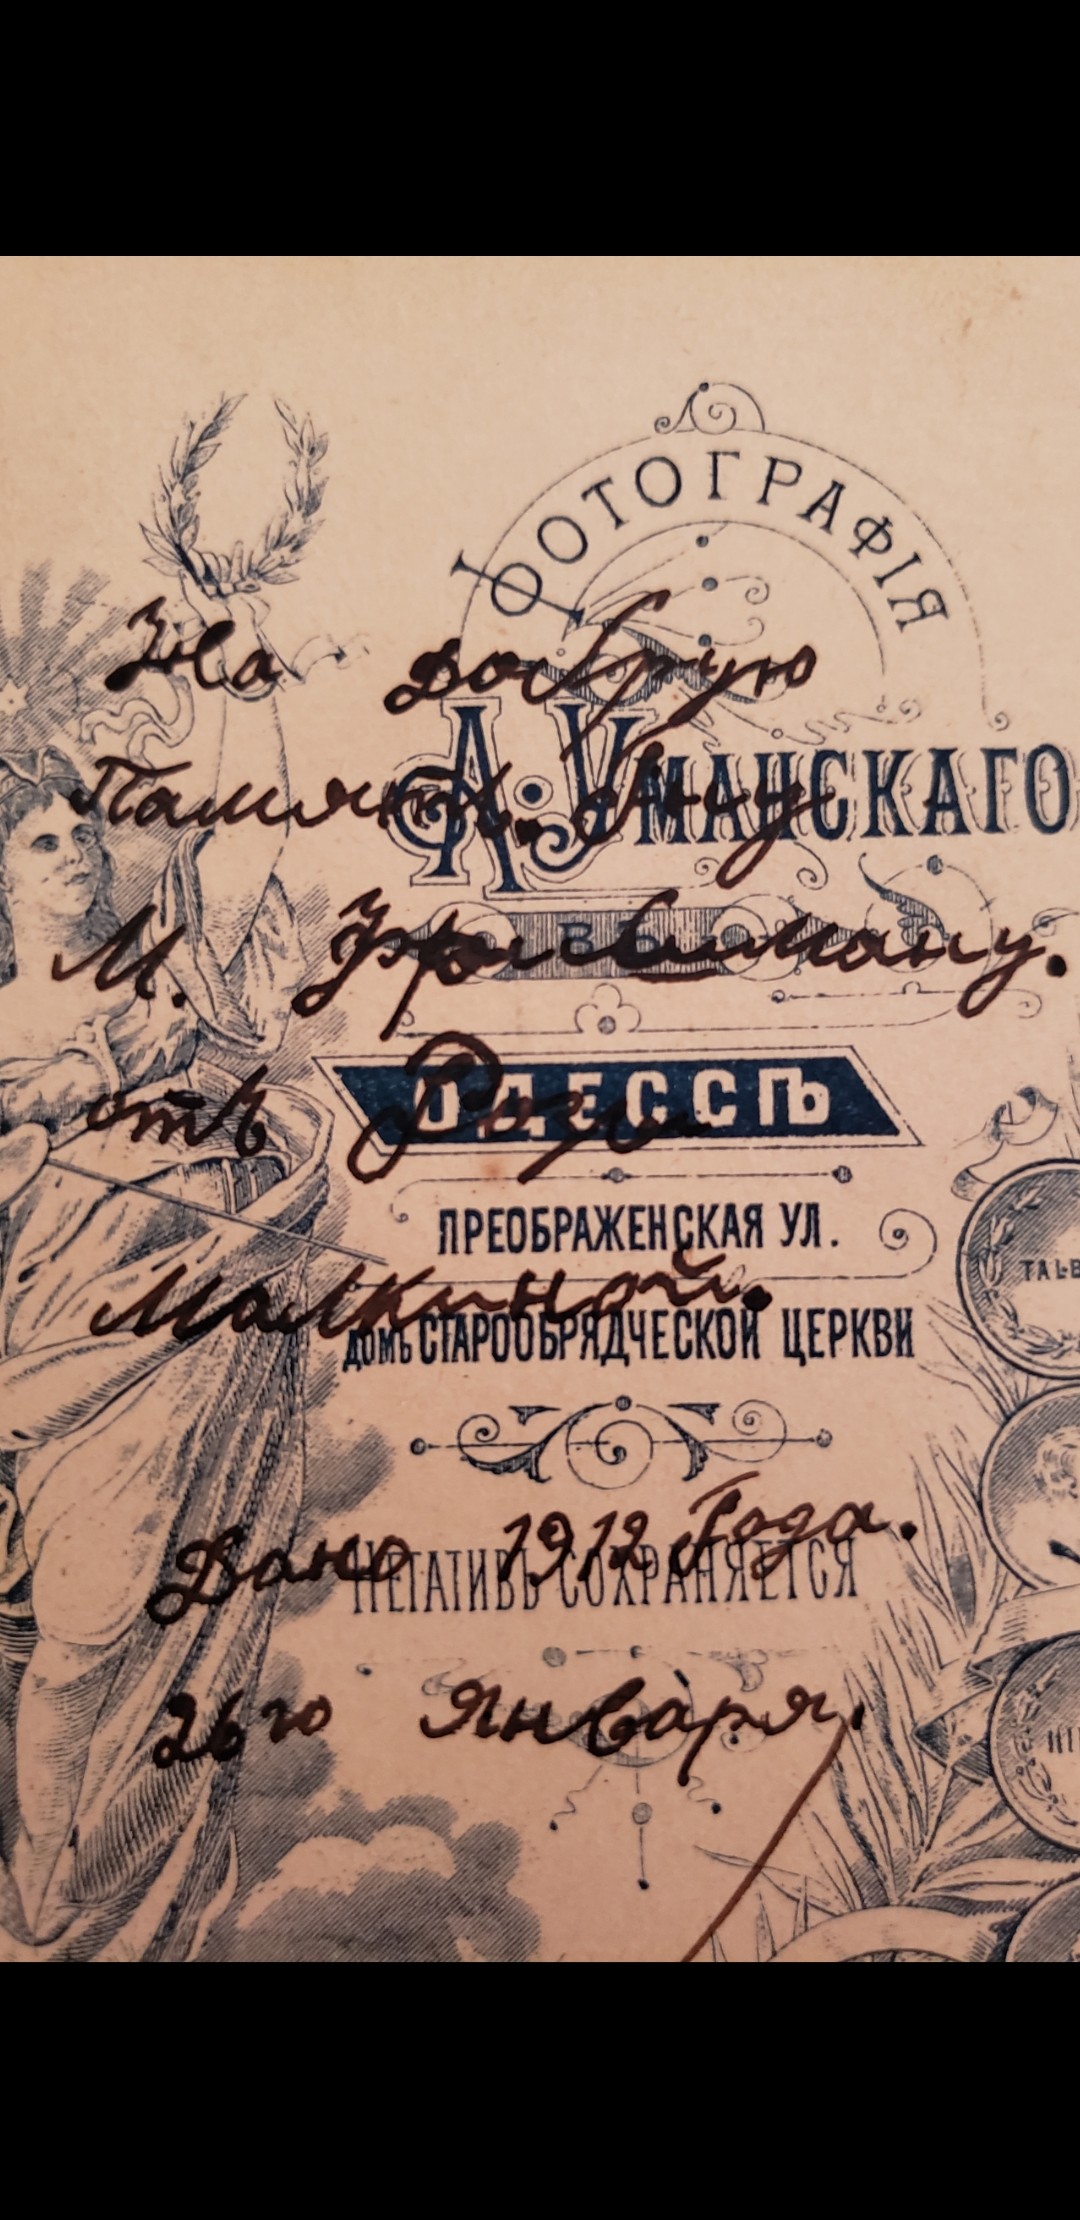 ФОТОГРАФІЯ
А. УМАНСКАГО
ВЪ
ОДЕССѢ
ПРЕОБРАЖЕНСКАЯ УЛ.
ДОМЪ СТАРООБРЯДЧЕСКОЙ ЦЕРКВИ
НЕГАТИВЪ СОХРАНЯЕТСЯ
TALB
На добрую
Память.
М.
отъ Розы
Малкиной.
Дано 1912 Года.
26го Января.